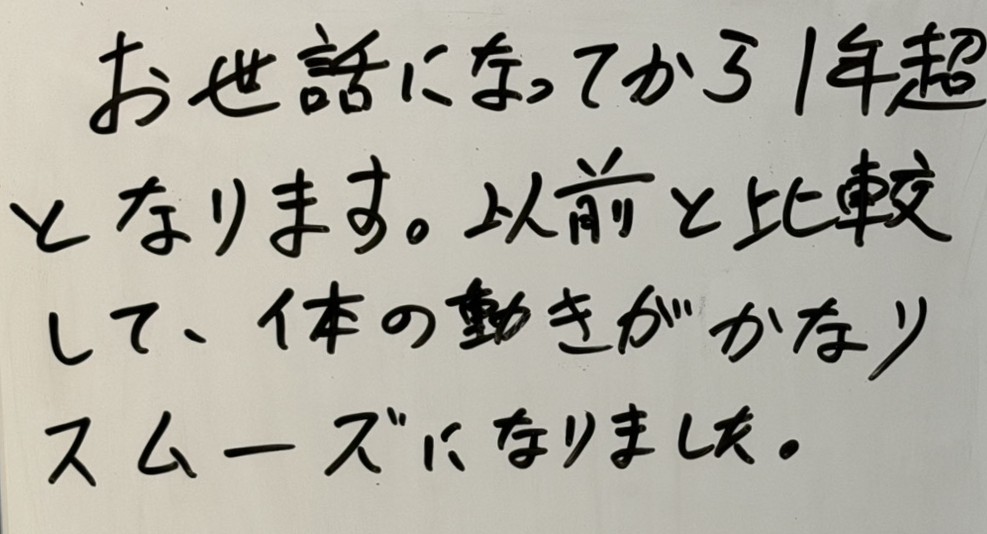 お世話になってから1年超
となります。以前と比較
して、体の動きがかなり
スムーズになりました。